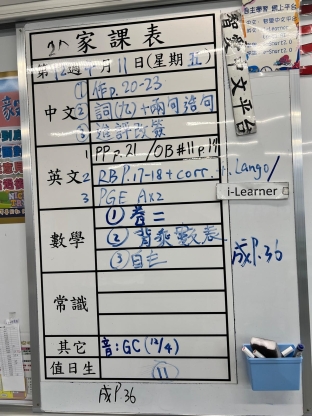 家課表
第12週 月11日(星期五)
中文
① 作p.20-23
② 詞(九)+兩句造句
③ 進評改簽
英文
1 PP p.21 / OB#11 p.19
2 RB P.17-18 + corr.
3 PGE Ax2
數學
① 卷二
② 背乘數表
③ 自
常識
其它
音:GC (12/4)
值日生
11
成P.36
智愛中文平台
Lango/
i-Learner
成P.36
自主學習 網上平台